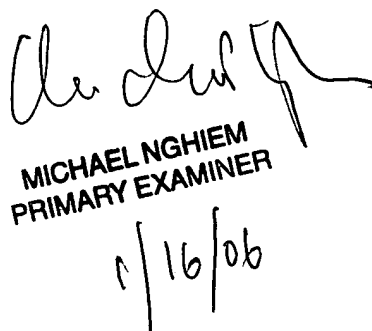 MICHAEL NGHIEM
PRIMARY EXAMINER
1/16/06